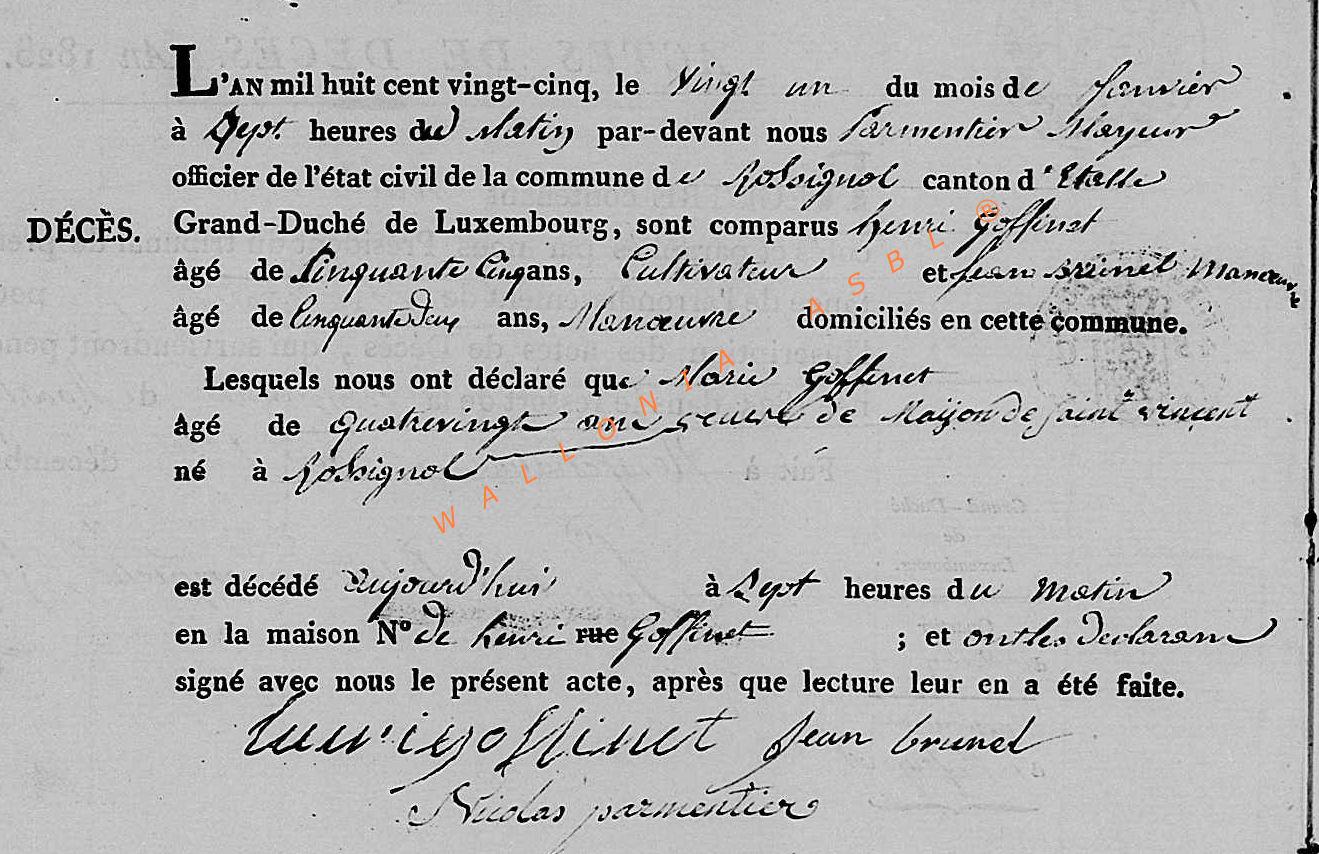 L'AN mil huit cent vingt-cinq, le Vingt un du mois de Janvier
à Sept heures du Matin par-devant nous Parmentier Mayeur
officier de l'état civil de la commune de Rossignol canton d'Etalle
DÉCÈS. Grand-Duché de Luxembourg, sont comparus henri Goffinet
âgé de Cinquante Cinq ans, Cultivateur et jean Brunel Manœuvre
âgé de Cinquante Deux ans, Manœuvre domiciliés en cette commune.
Lesquels nous ont déclaré que Marie Goffinet
âgé de Quatrevingt ans veuve de de Saint vincent
né à Rossignol
est décédé aujourd'hui à Sept heures du Matin
en la maison N° de henri rue Goffinet ; et ont les Declarans
signé avec nous le présent acte, après que lecture leur en a été faite.
henri goffinet jean brunel
Nicolas parmentier
WALLONIA ASBL ®